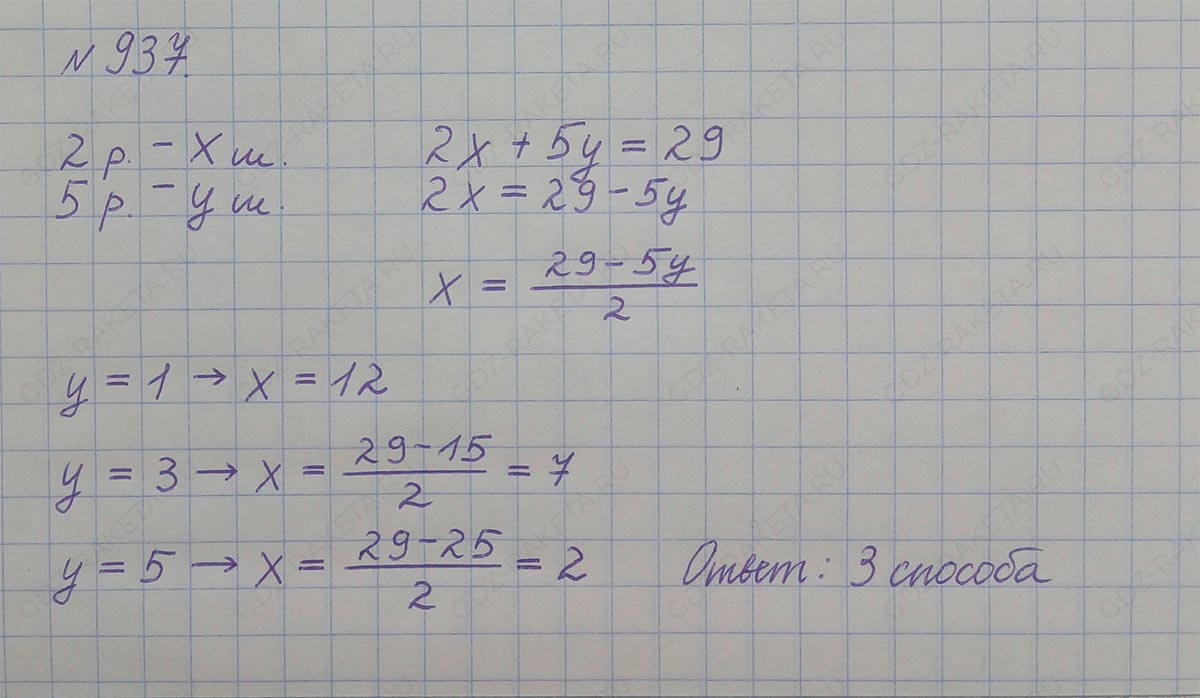 № 937.
2 р. – x ш.
5 р. – y ш.
2x + 5y = 29
2x = 29 – 5y
x = (29 – 5y)/2
y = 1 → x = 12
y = 3 → x = (29 – 15)/2 = 7
y = 5 → x = (29 – 25)/2 = 2
Ответ: 3 способа
GDZ-RAKETA.RU